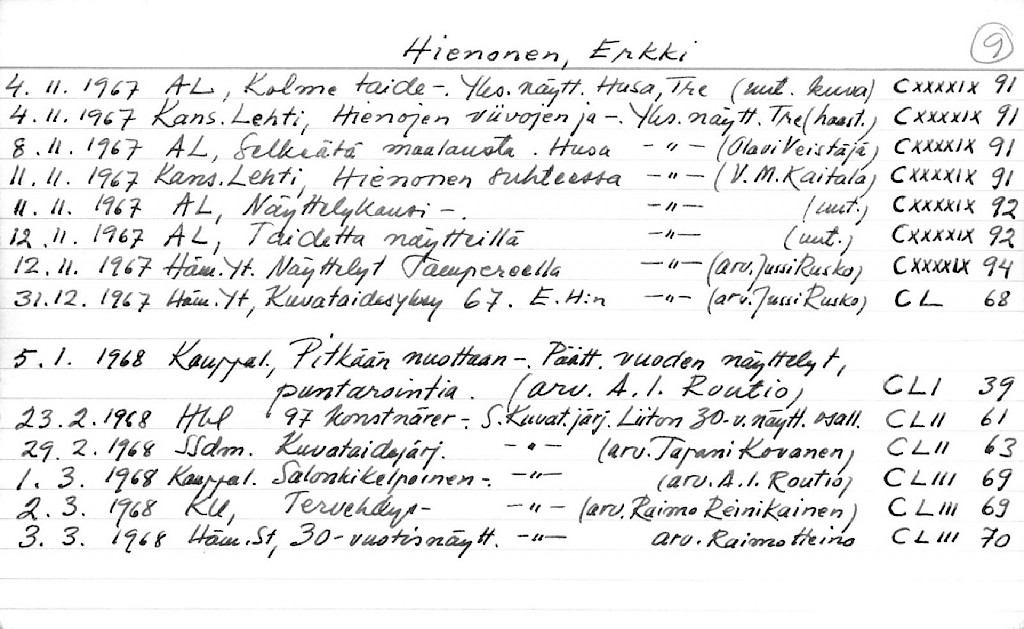 Hienonen, Erkki 9
4. 11. 1967 AL, Kolme taide-. Yks. näytt. Husa, Tre (uut. kuva) CXXXXIX 91
4. 11. 1967 Kans. Lehti, Hienojen viivojen ja-. Yks. näytt. Tre (haast.) CXXXXIX 91
8. 11. 1967 AL, Selkeätä maalausta. Husa -"- (Olavi Veistäjä) CXXXXIX 91
11. 11. 1967 Kans. Lehti, Hienonen suhteessa -"- (V. M. Kaitala) CXXXXIX 91
11. 11. 1967 AL, Näyttelykausi-. -"- (uut.) CXXXXIX 92
12. 11. 1967 AL, Taidetta näytteillä -"- (uut.) CXXXXIX 92
12. 11. 1967 Häm. Yt. Näyttelyt Tampereella -"- (arv. Jussi Rusko) CXXXXIX 94
31. 12. 1967 Häm. Yt, Kuvataidesyksy 67. E. H:n -"- (arv. Jussi Rusko) CL 68
5. 1. 1968 Kauppal., Pitkään nuottaan-. Päätt. vuoden näyttelyt,
puntarointia. (arv. A. I. Routio) CLI 39
23. 2. 1968 Hbl 97 konstnärer-. S. Kuvat. järj. Liiton 30-v. näytt. osall. CLII 61
29. 2. 1968 SSdm. Kuvataidejärj. -"- (arv. Tapani Kovanen) CLII 63
1. 3. 1968 Kauppal. Salonkikelpoinen-. -"- (arv. A. I. Routio) CLIII 69
2. 3. 1968 KU, Tervehdys- -"- (arv. Raimo Reinikainen) CLIII 69
3. 3. 1968 Häm. St, 30-vuotisnäytt. -"- arv. Raimo Heino CLIII 70